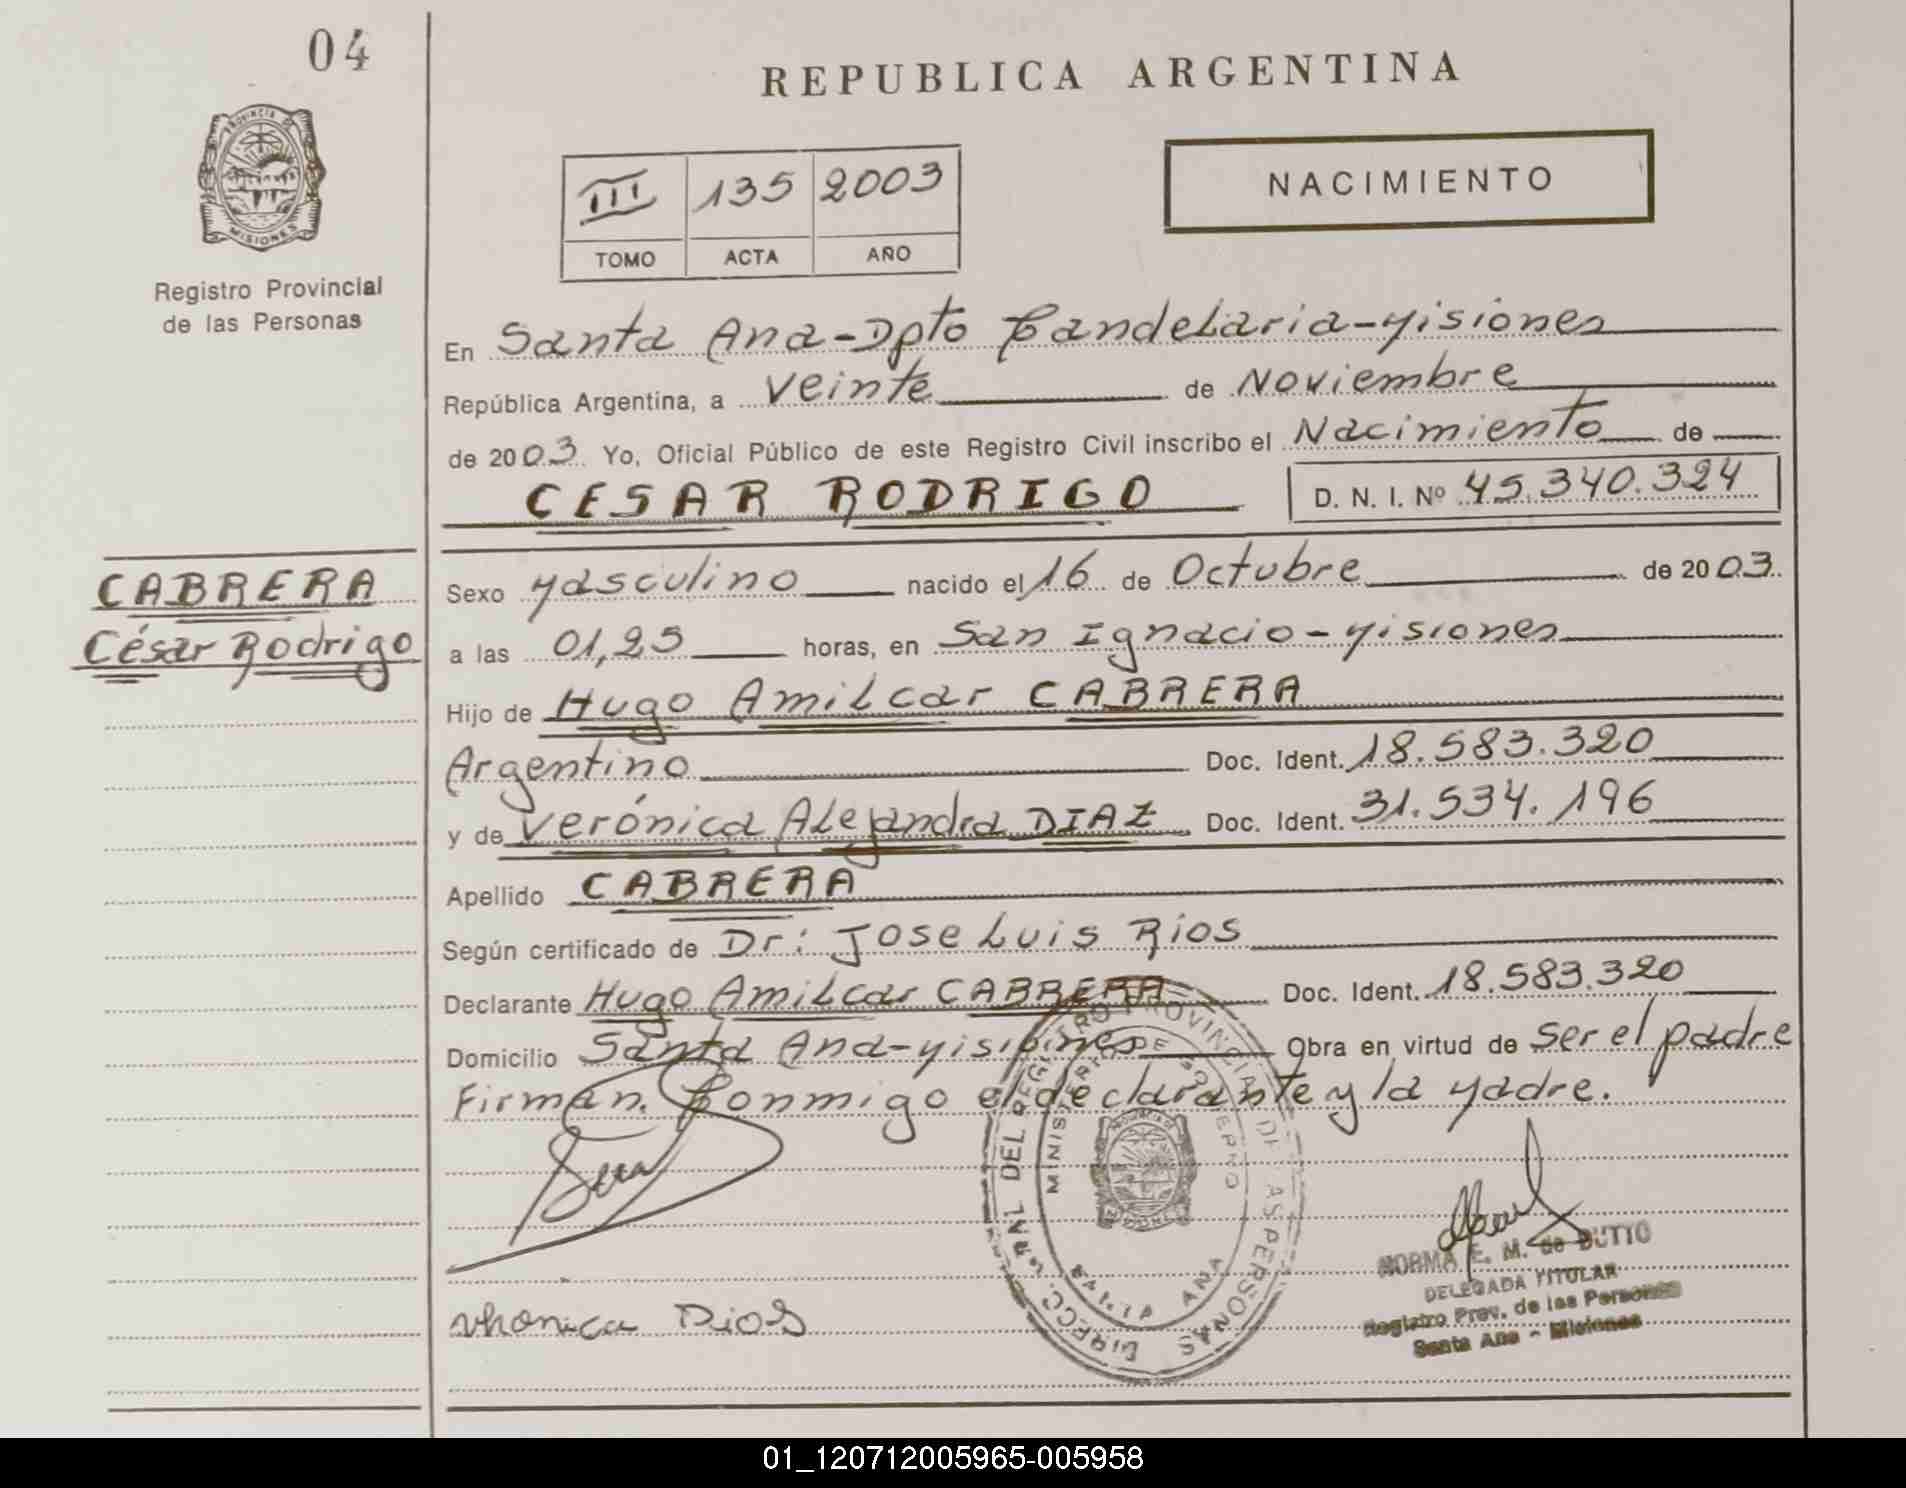 04
REPUBLICA ARGENTINA
PROVINCIA DE
MISIONES
Registro Provincial
de las Personas
III 135 2003
TOMO ACTA AÑO
NACIMIENTO
En Santa Ana-Dpto Candelaria-Misiones
República Argentina, a Veinte de Noviembre
de 2003 Yo, Oficial Público de este Registro Civil inscribo el Nacimiento de
CESAR RODRIGO D. N. I. Nº 45.340.324
CABRERA
César Rodrigo
Sexo Masculino nacido el 16 de Octubre de 2003
a las 01,25 horas, en San Ignacio-Misiones
Hijo de Hugo Amilcar CABRERA
Argentino Doc. Ident. 18.583.320
y de Verónica Alejandra DIAZ Doc. Ident. 31.534.196
Apellido CABRERA
Según certificado de Dr: Jose Luis Rios
Declarante Hugo Amilcar CABRERA Doc. Ident. 18.583.320
Domicilio Santa Ana-Misiones Obra en virtud de ser el padre
Firman Conmigo el declarante y la Madre.
DIRECC. GRAL. DEL REGISTRO PROVINCIAL DE LAS PERSONAS
MINISTERIO DE GOBIERNO
SANTA ANA
NORMA E. M. de DUTTO
DELEGADA TITULAR
Registro Prov. de las Personas
Santa Ana - Misiones
01_120712005965-005958